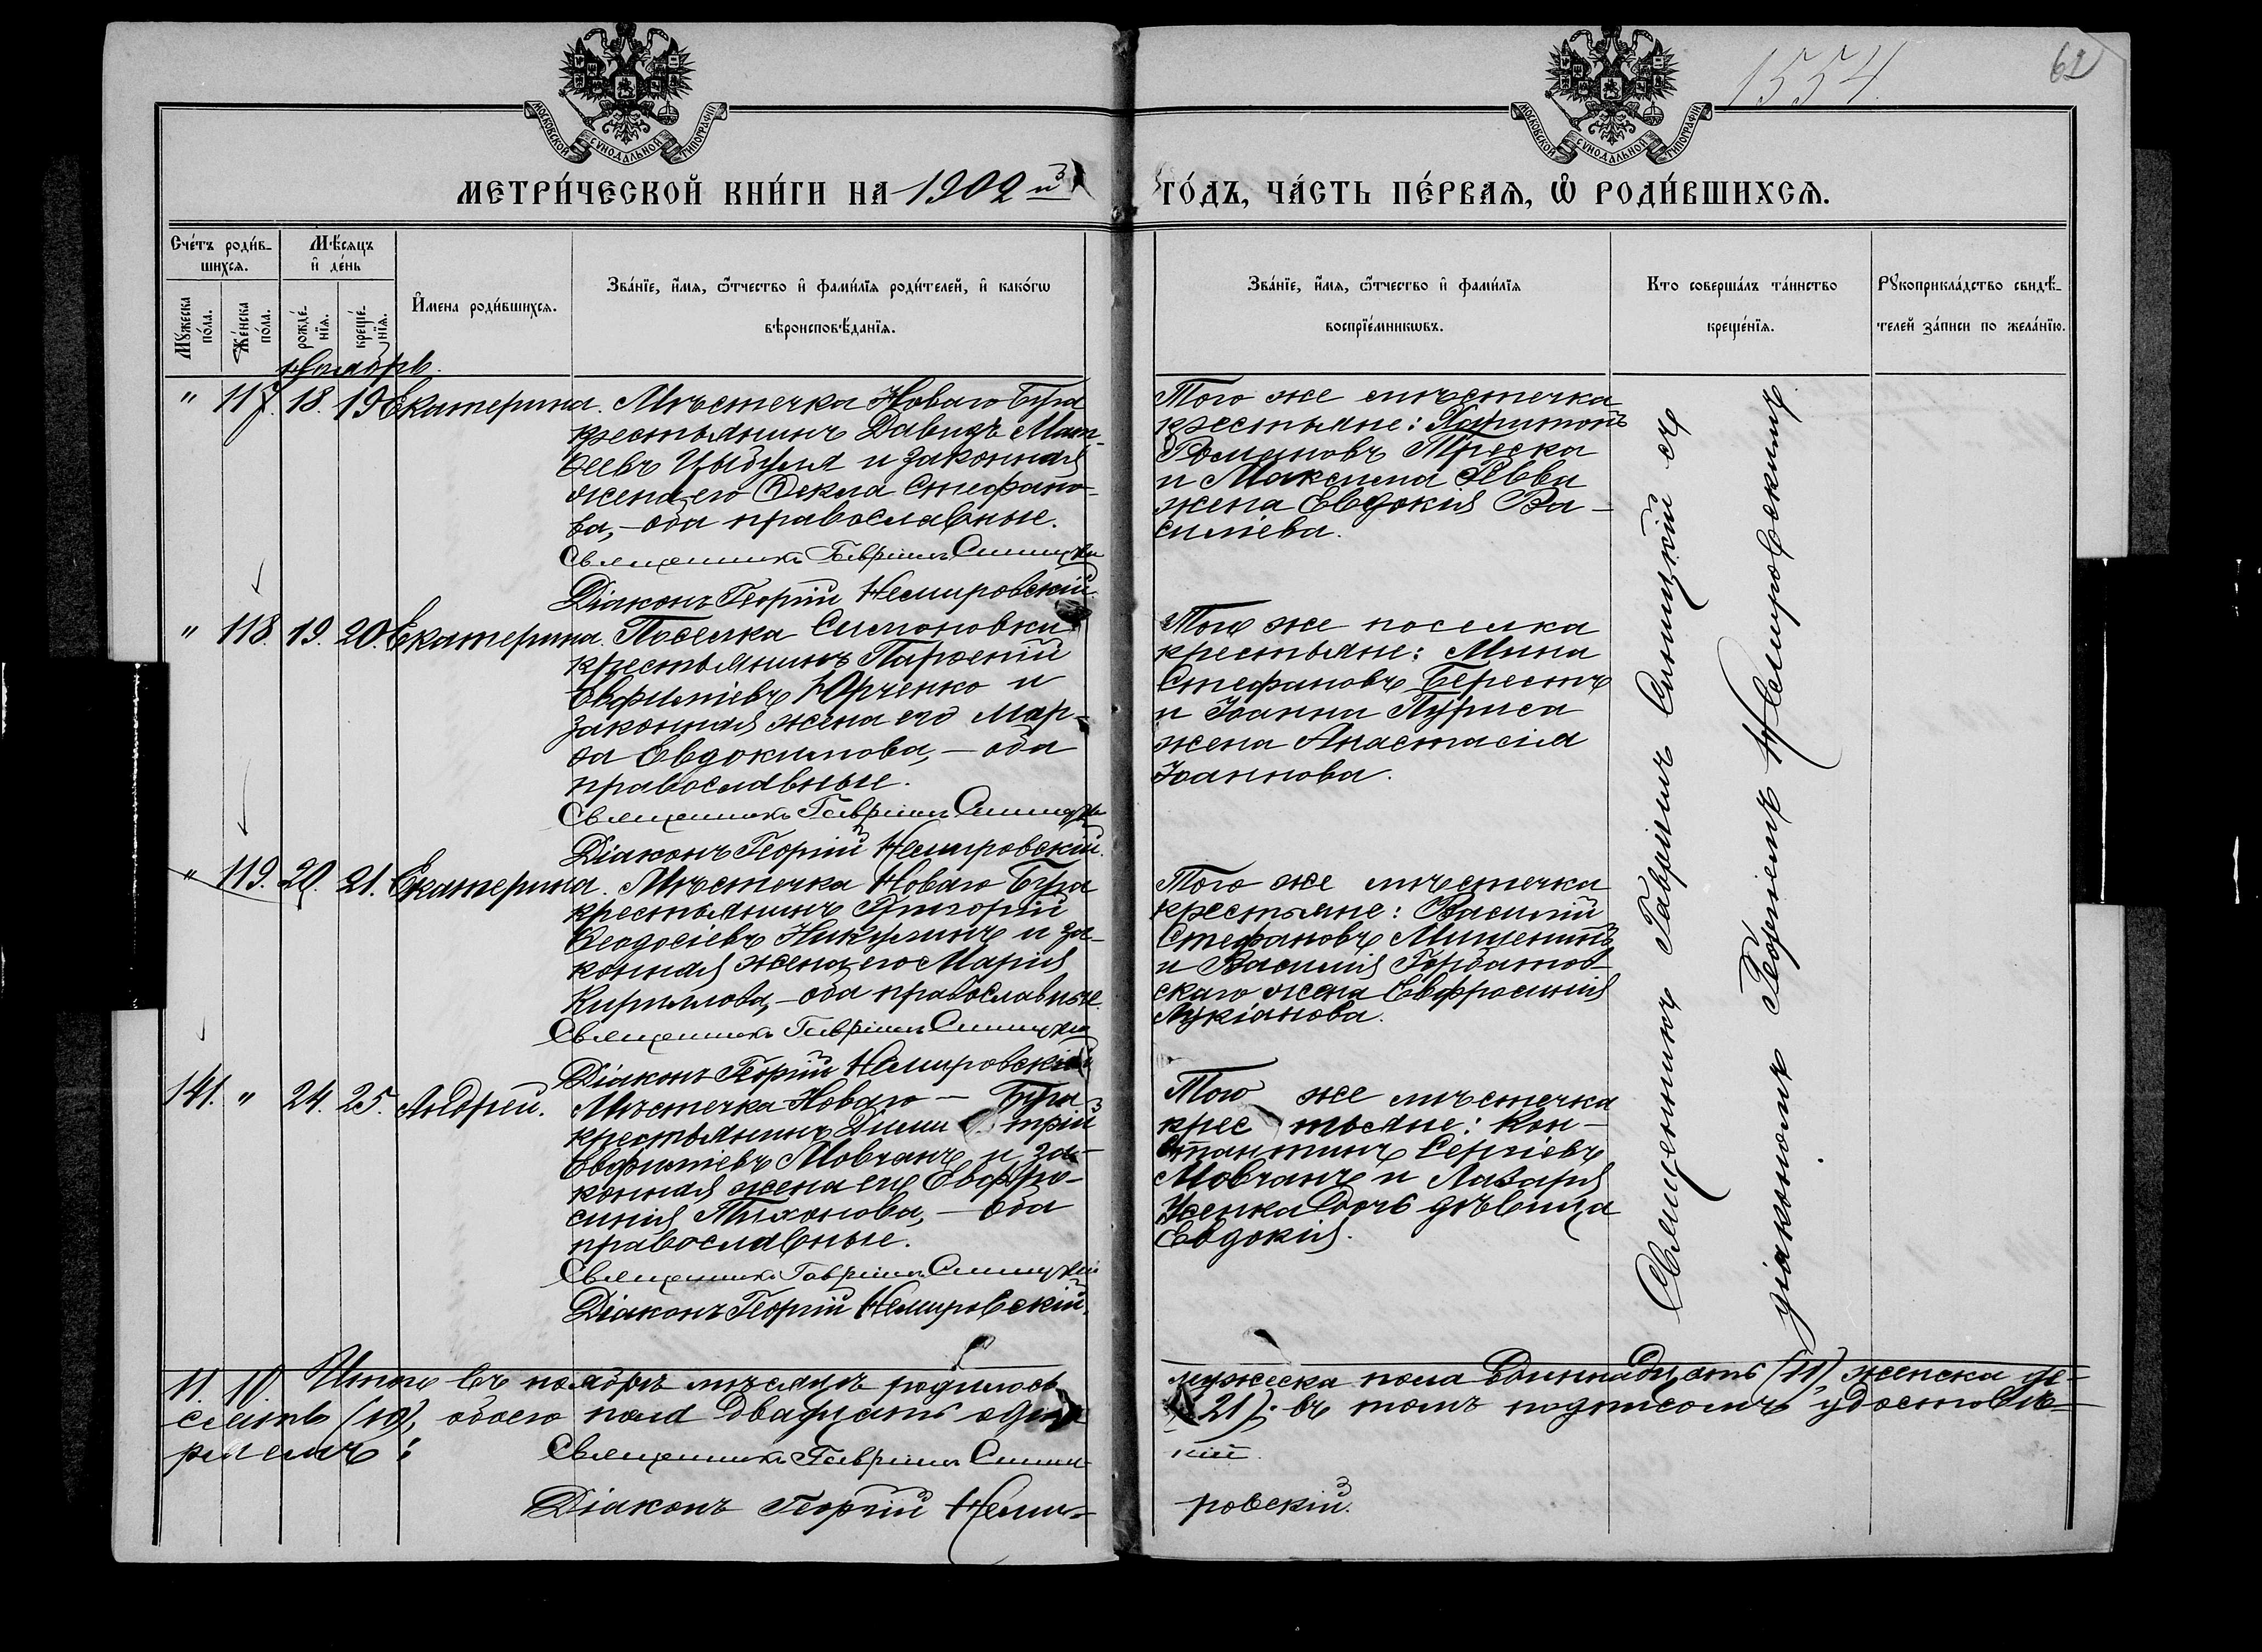 1554.
62
МОСКОВСКОЙ СѴНОДАЛЬНОЙ ТИПОГРАФІИ
МОСКОВСКОЙ СѴНОДАЛЬНОЙ ТИПОГРАФІИ
МЕТРИ́ЧЕСКОЙ КНИ́ГИ НА 1902й ГО́ДЪ, ЧА́СТЬ ПЕ́РВАЯ, Ѡ҆ РОДИ́ВШИХСЯ.
Сче́тъ роди́в-
шихся.
Мѣ́сяцъ
и҆ де́нь
Мꙋ́жеска
по́ла.
Же́нска
по́ла.
рожде́-
нїя.
креще́-
нїя.
И҆мена роди́вшихся.
Зва́нїе, и҆́мя, ѻ҆́тчество и҆ фами́лїя роди́телей, и҆ како́гѡ
вѣроисповѣ́данїя.
Зва́нїе, и҆́мя, ѻ҆́тчество и҆ фами́лїя
воспрїе́мникѡвъ.
Кто̀ соверша́лъ та́инство
креще́нїя.
Рꙋкоприкла́дство свидѣ́-
телей за́писи по жела́нїю.
Ноябрь.
" 117. 18. 19 Екатерина. Мѣстечка Новаго Буга
крестьянинъ Давидъ Мат-
ѳеевъ Цыбуля и законная
жена его Ѳекла Стефано-
ва, – оба православные.
Священникъ Гавріилъ Синицкій
Діаконъ Георгій Немировскій.
Того же мѣстечка
крестьяне: Харитонъ
Романовъ Треска
и Максима Рѣвва
жена Евдокія Ва-
силіева.
" 118. 19. 20. Екатерина. Поселка Симоновки
крестьянинъ Парѳеній
Евфиміевъ Юрченко и
законная жена его Мар-
ѳа Евдокимова, – оба
православные.
Священникъ Гавріилъ Синицкій
Діаконъ Георгій Немировскій.
Того же поселка
крестьяне: Мина
Стефановъ Берестъ
и Іоанна
жена Анастасія
Іоаннова.
" 119. 20. 21. Екатерина. Мѣстечка Новаго Буга
крестьянинъ Григорій
Ѳеодосіевъ Никулинъ и за-
конная жена его Марія
Кириллова, – оба православные.
Священникъ Гавріилъ Синицкій
Діаконъ Георгій Немировскій
Того же мѣстечка
крестьяне: Василій
Стефановъ
и Василія Горбанов-
скаго жена Евфросинія
Лукіанова.
141. " 24. 25. Андрей. Мѣстечка Новаго – Буга
крестьянинъ Дими трій
Евфиміевъ Мовчанъ и за-
конная жена его Евфро-
синія Тихонова, – оба
православные.
Священникъ Гавріилъ Синицкій
Діаконъ Георгій Немировскій.
Того же мѣстечка
крес тьяне: Кон-
стантинъ Сергіевъ
Мовчанъ и Лазаря
Усенка дочь дѣвица
Евдокія.
Священникъ Гавріилъ Синицкій съ
діакономъ Георгіемъ Немировскимъ.
11. 10. Итого въ ноябрѣ мѣсяцѣ родилось мужеска пола одиннадцать (11), женска де-
сять (10), обоего пола двадцать одинъ (21); въ томъ подписомъ удостовѣ-
ряемъ:
Священникъ Гавріилъ Синиц-кій.
Діаконъ Георгій Неми-ровскій.